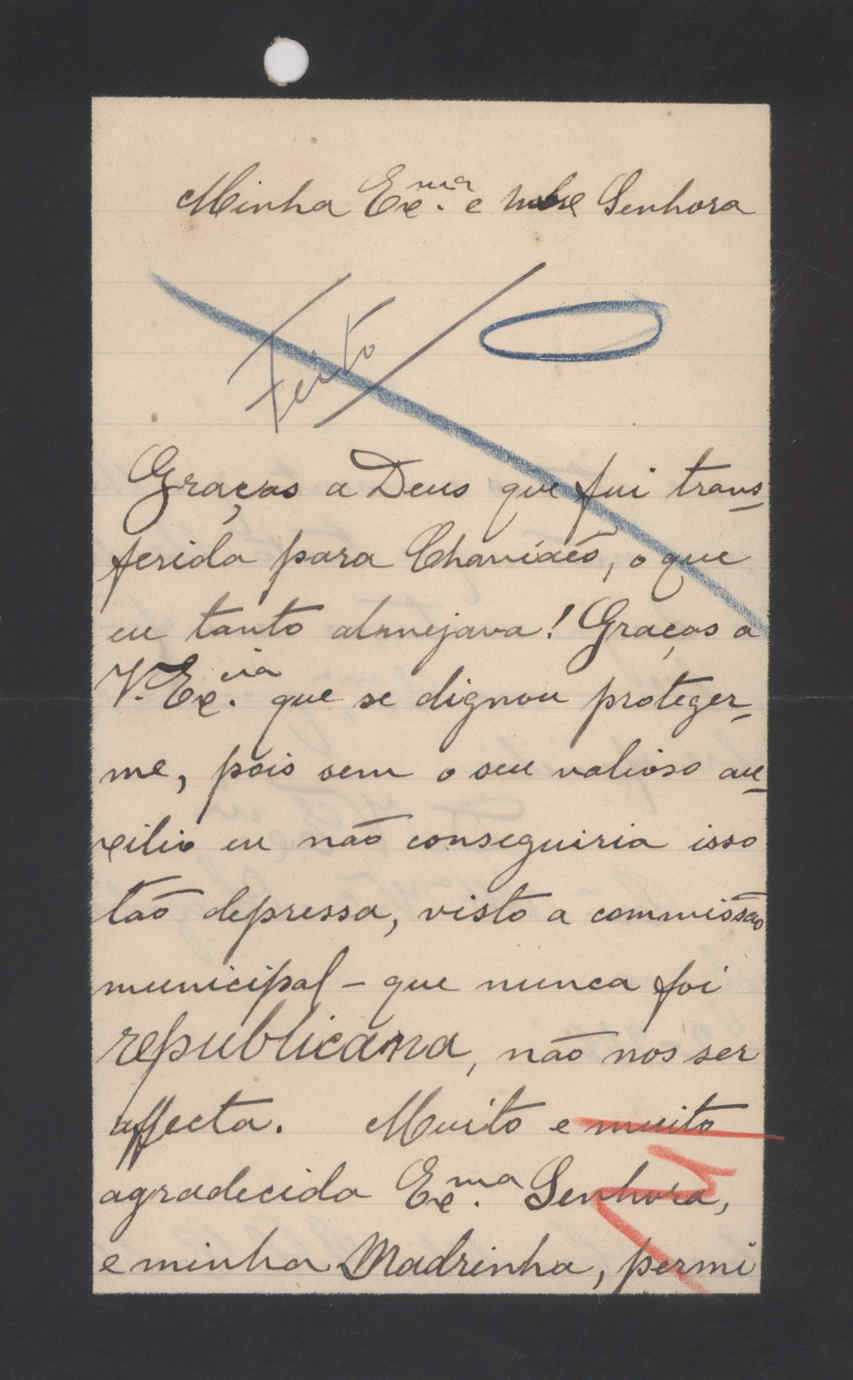 Minha Exma. e nobre Senhora
Feito
Graças a Deus que fui trans-
ferida para Chaviães, o que
eu tanto almejava! Graças a
V. Excia. que se dignou proteger-
me, pois sem o seu valioso au-
xilio eu não conseguiria isso
tão depressa, visto a commissão
municipal - que nunca foi
republicana, não nos ser
affecta. Muito e muito
agradecida Exma. Senhora,
e minha Madrinha, permi